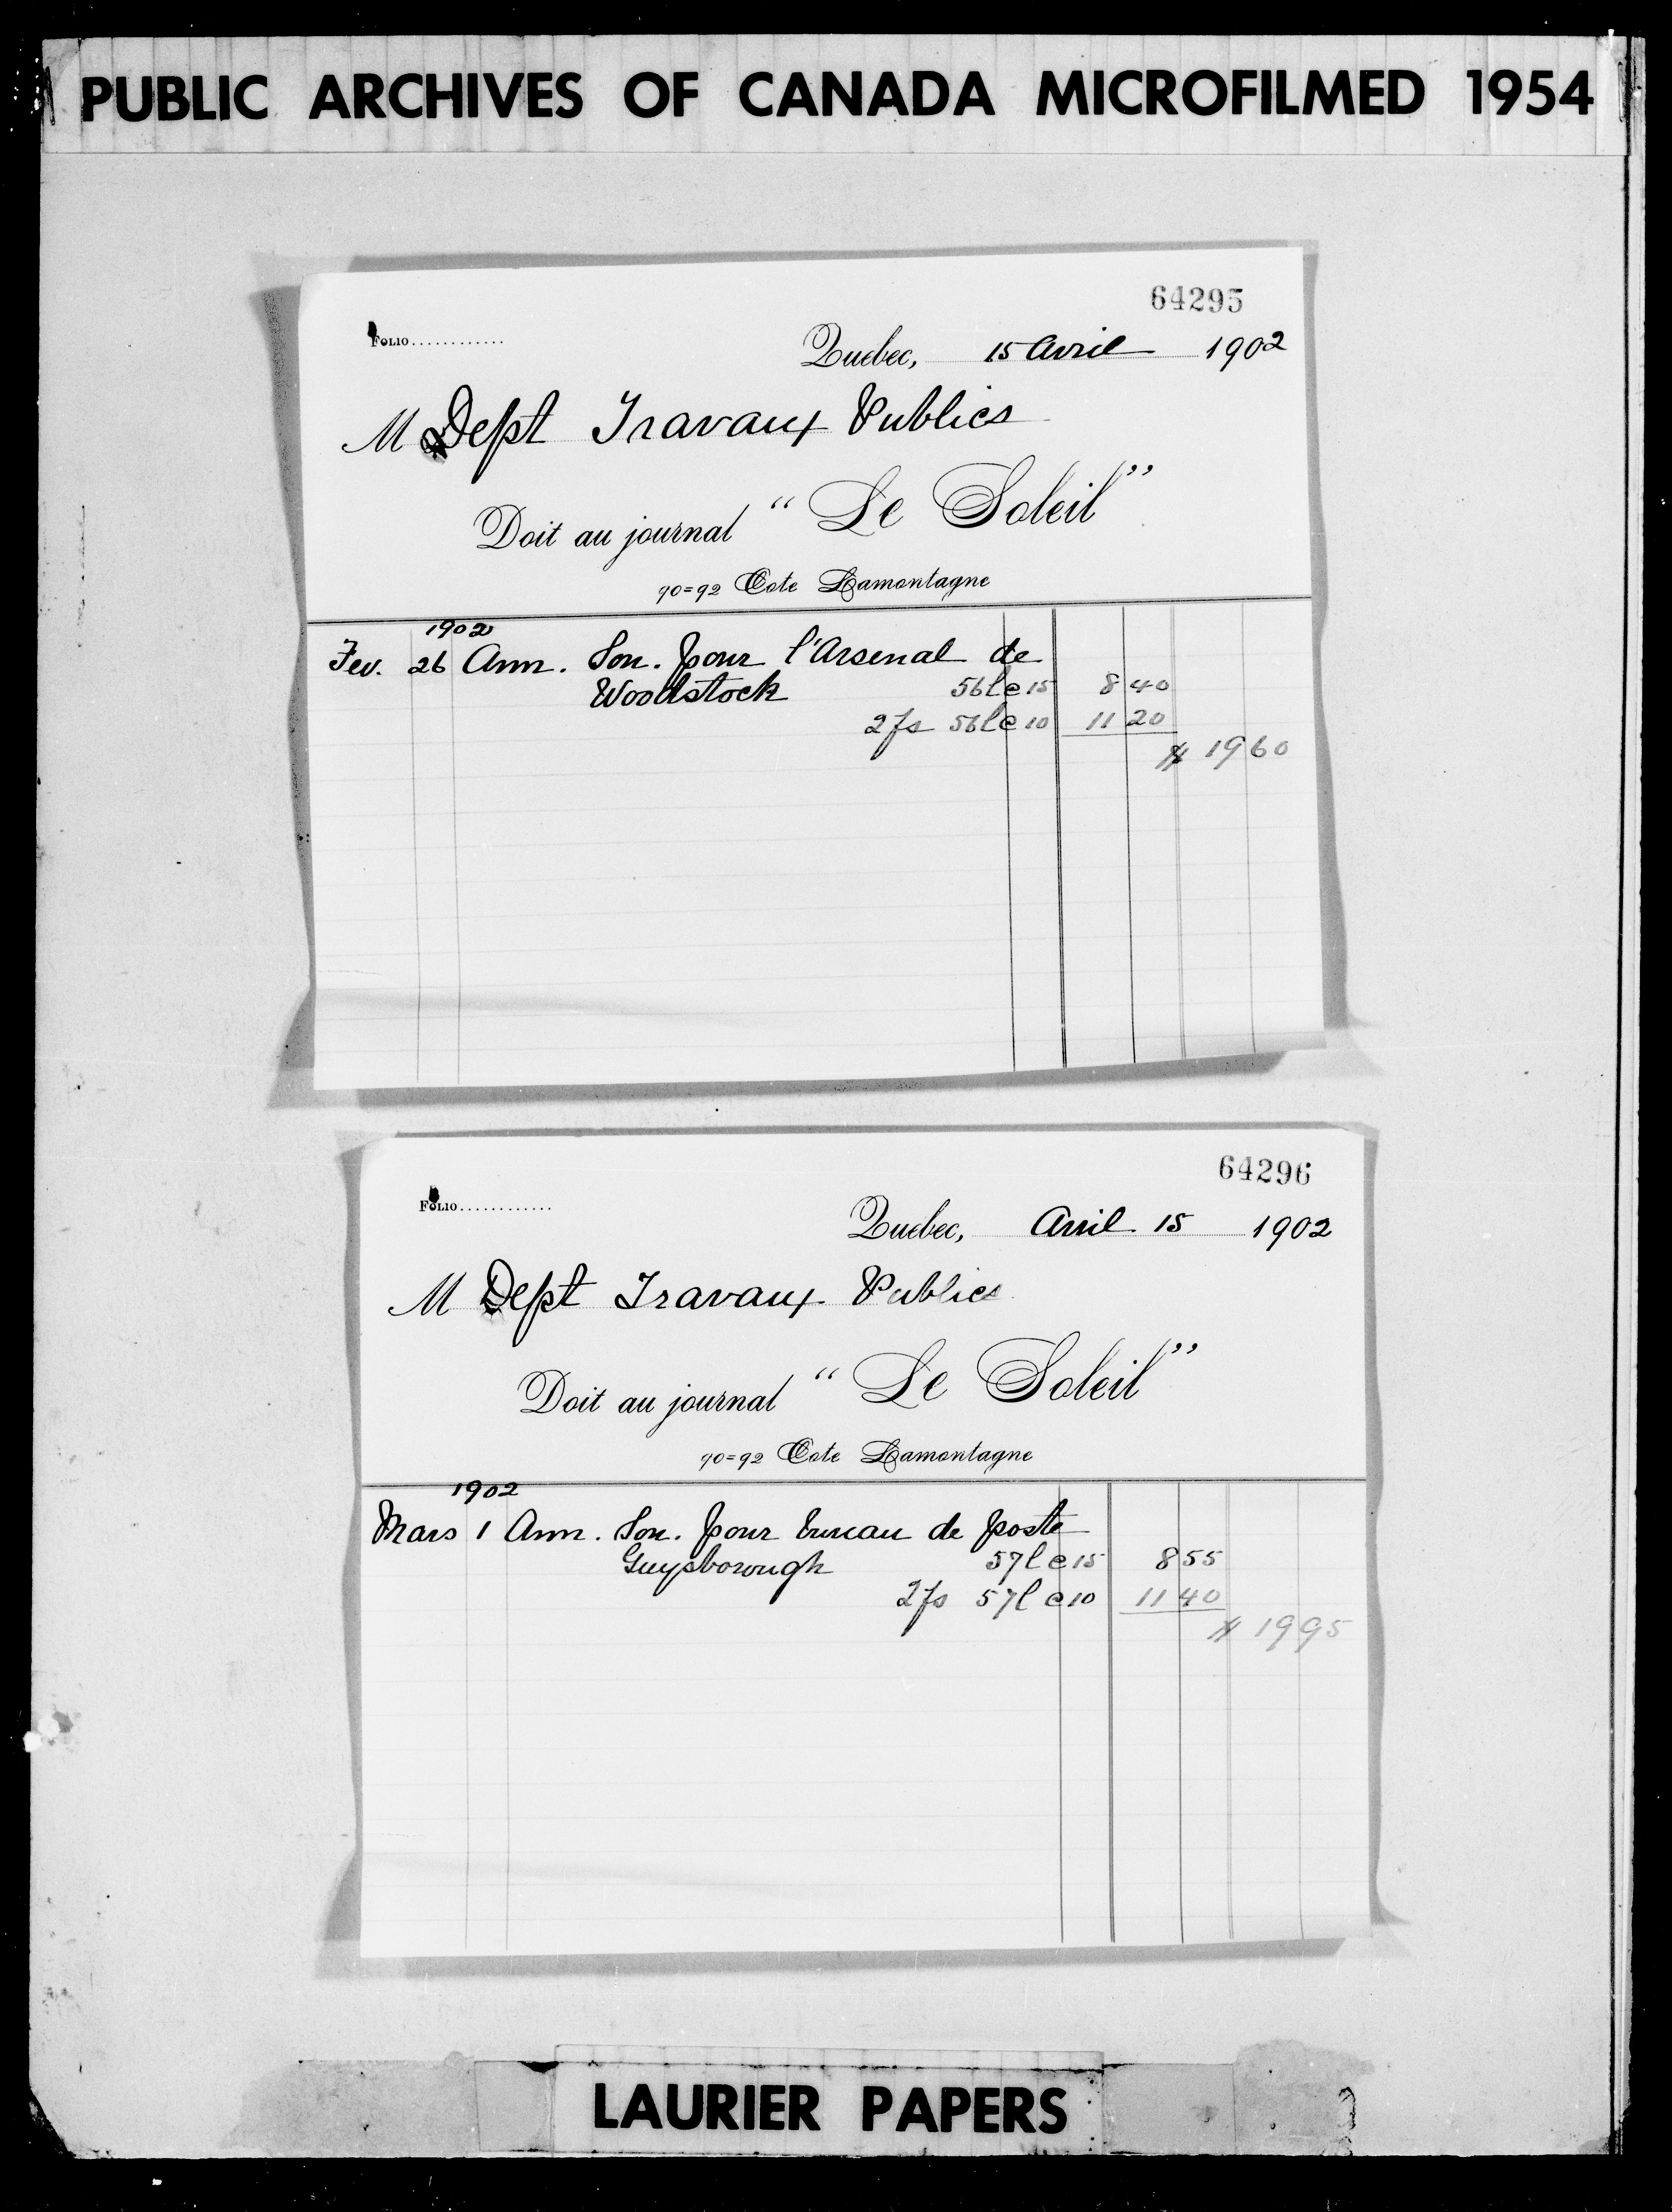 PUBLIC ARCHIVES OF CANADA MICROFILMED 1954
64295
FOLIO............
Quebec, 15 Avril 1902
M Dept Travaux Publics
Doit au journal "Le Soleil"
90=92 Cote Lamontagne
1902
Fev. 26 Ann. Sou. pour l'Arsenal de
Woodstock 56l @ 15 8 40
2fs 56l @ 10 11 20
$ 19 60
64296
FOLIO............
Quebec, Avril 15 1902
M Dept Travaux Publics
Doit au journal "Le Soleil"
90=92 Cote Lamontagne
1902
Mars 1 Ann. Sou. pour bureau de poste
Guysborough 57l @ 15 8 55
2fs 57l @ 10 11 40
$ 19 95
LAURIER PAPERS